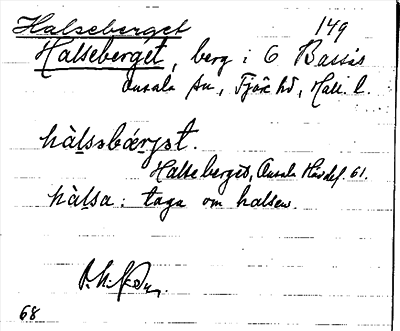 Halseberget 149
Halseberget, berg i 6 Bassås
Onsala sn, Fjäre hd, Hall. l.
hàlssbǽrjət.
Halseberget, Onsala 61.
hàlsa: taga om halsen.
68